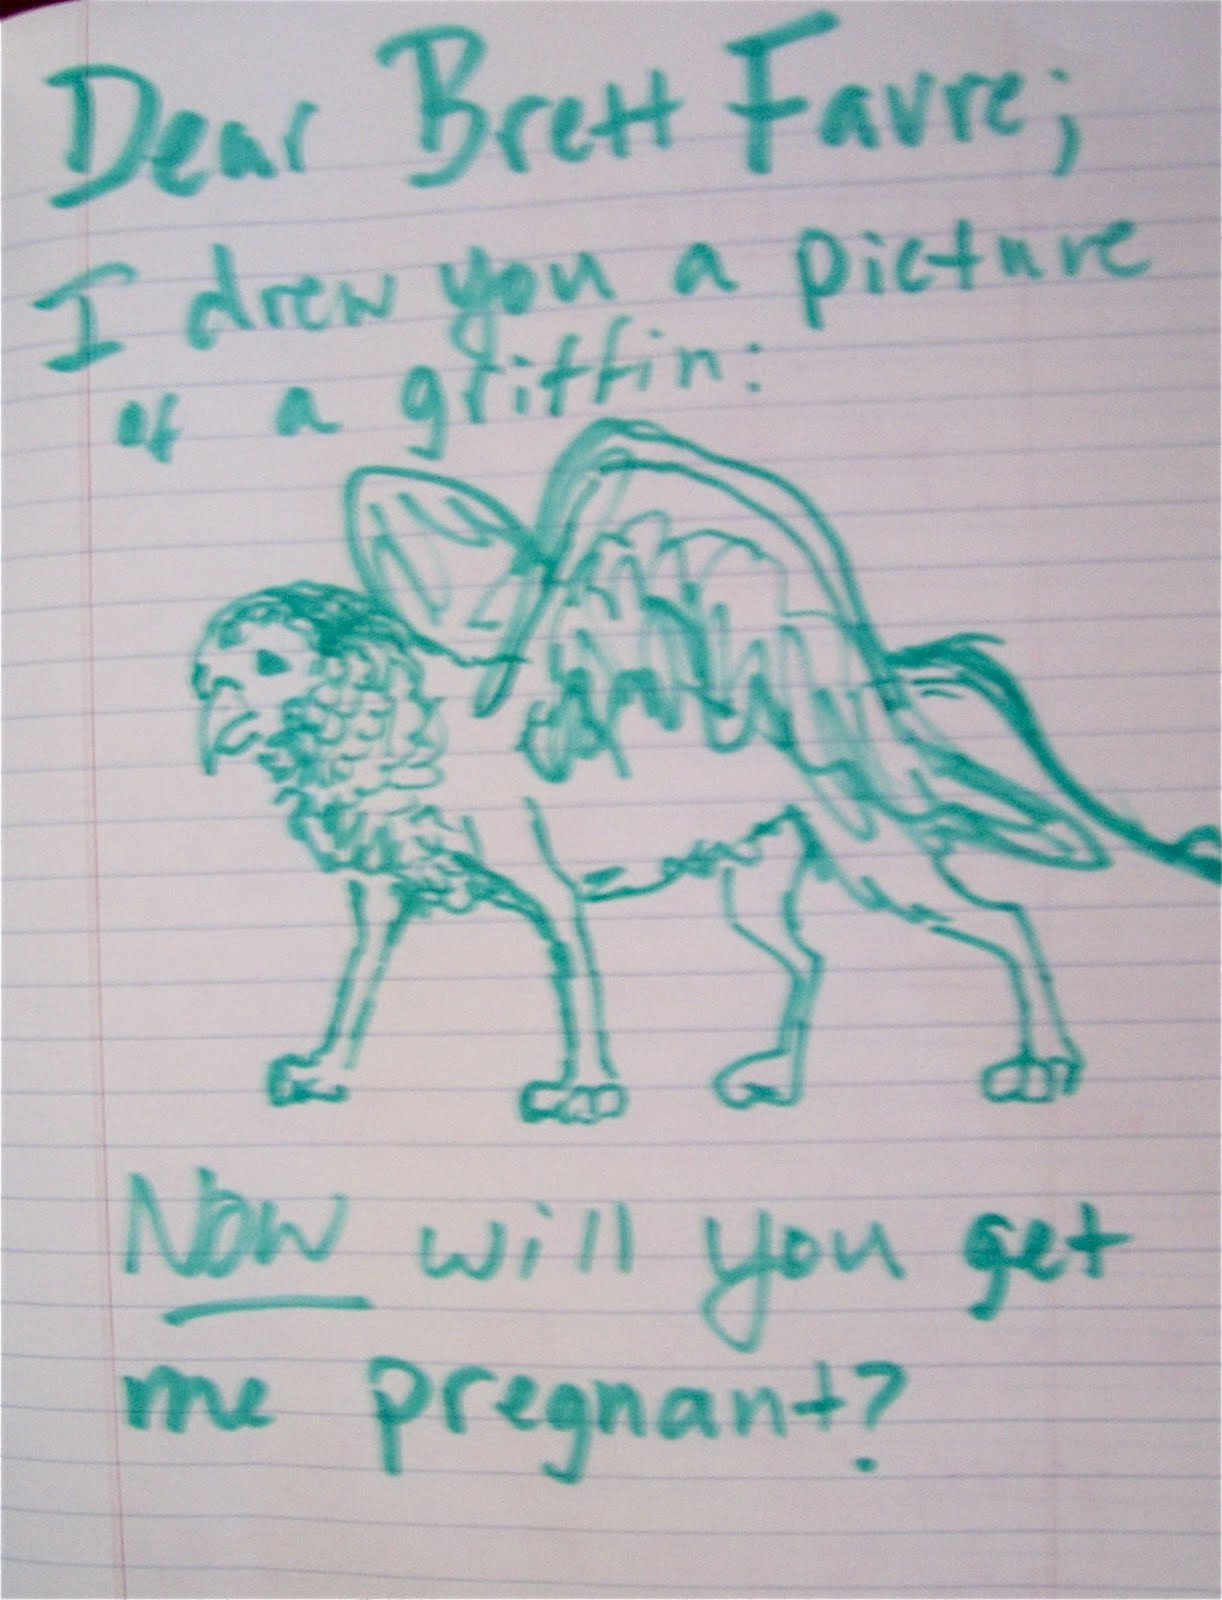 Dear Brett Favre;
I drew you a picture
of a griffin:
Now will you get
me pregnant?